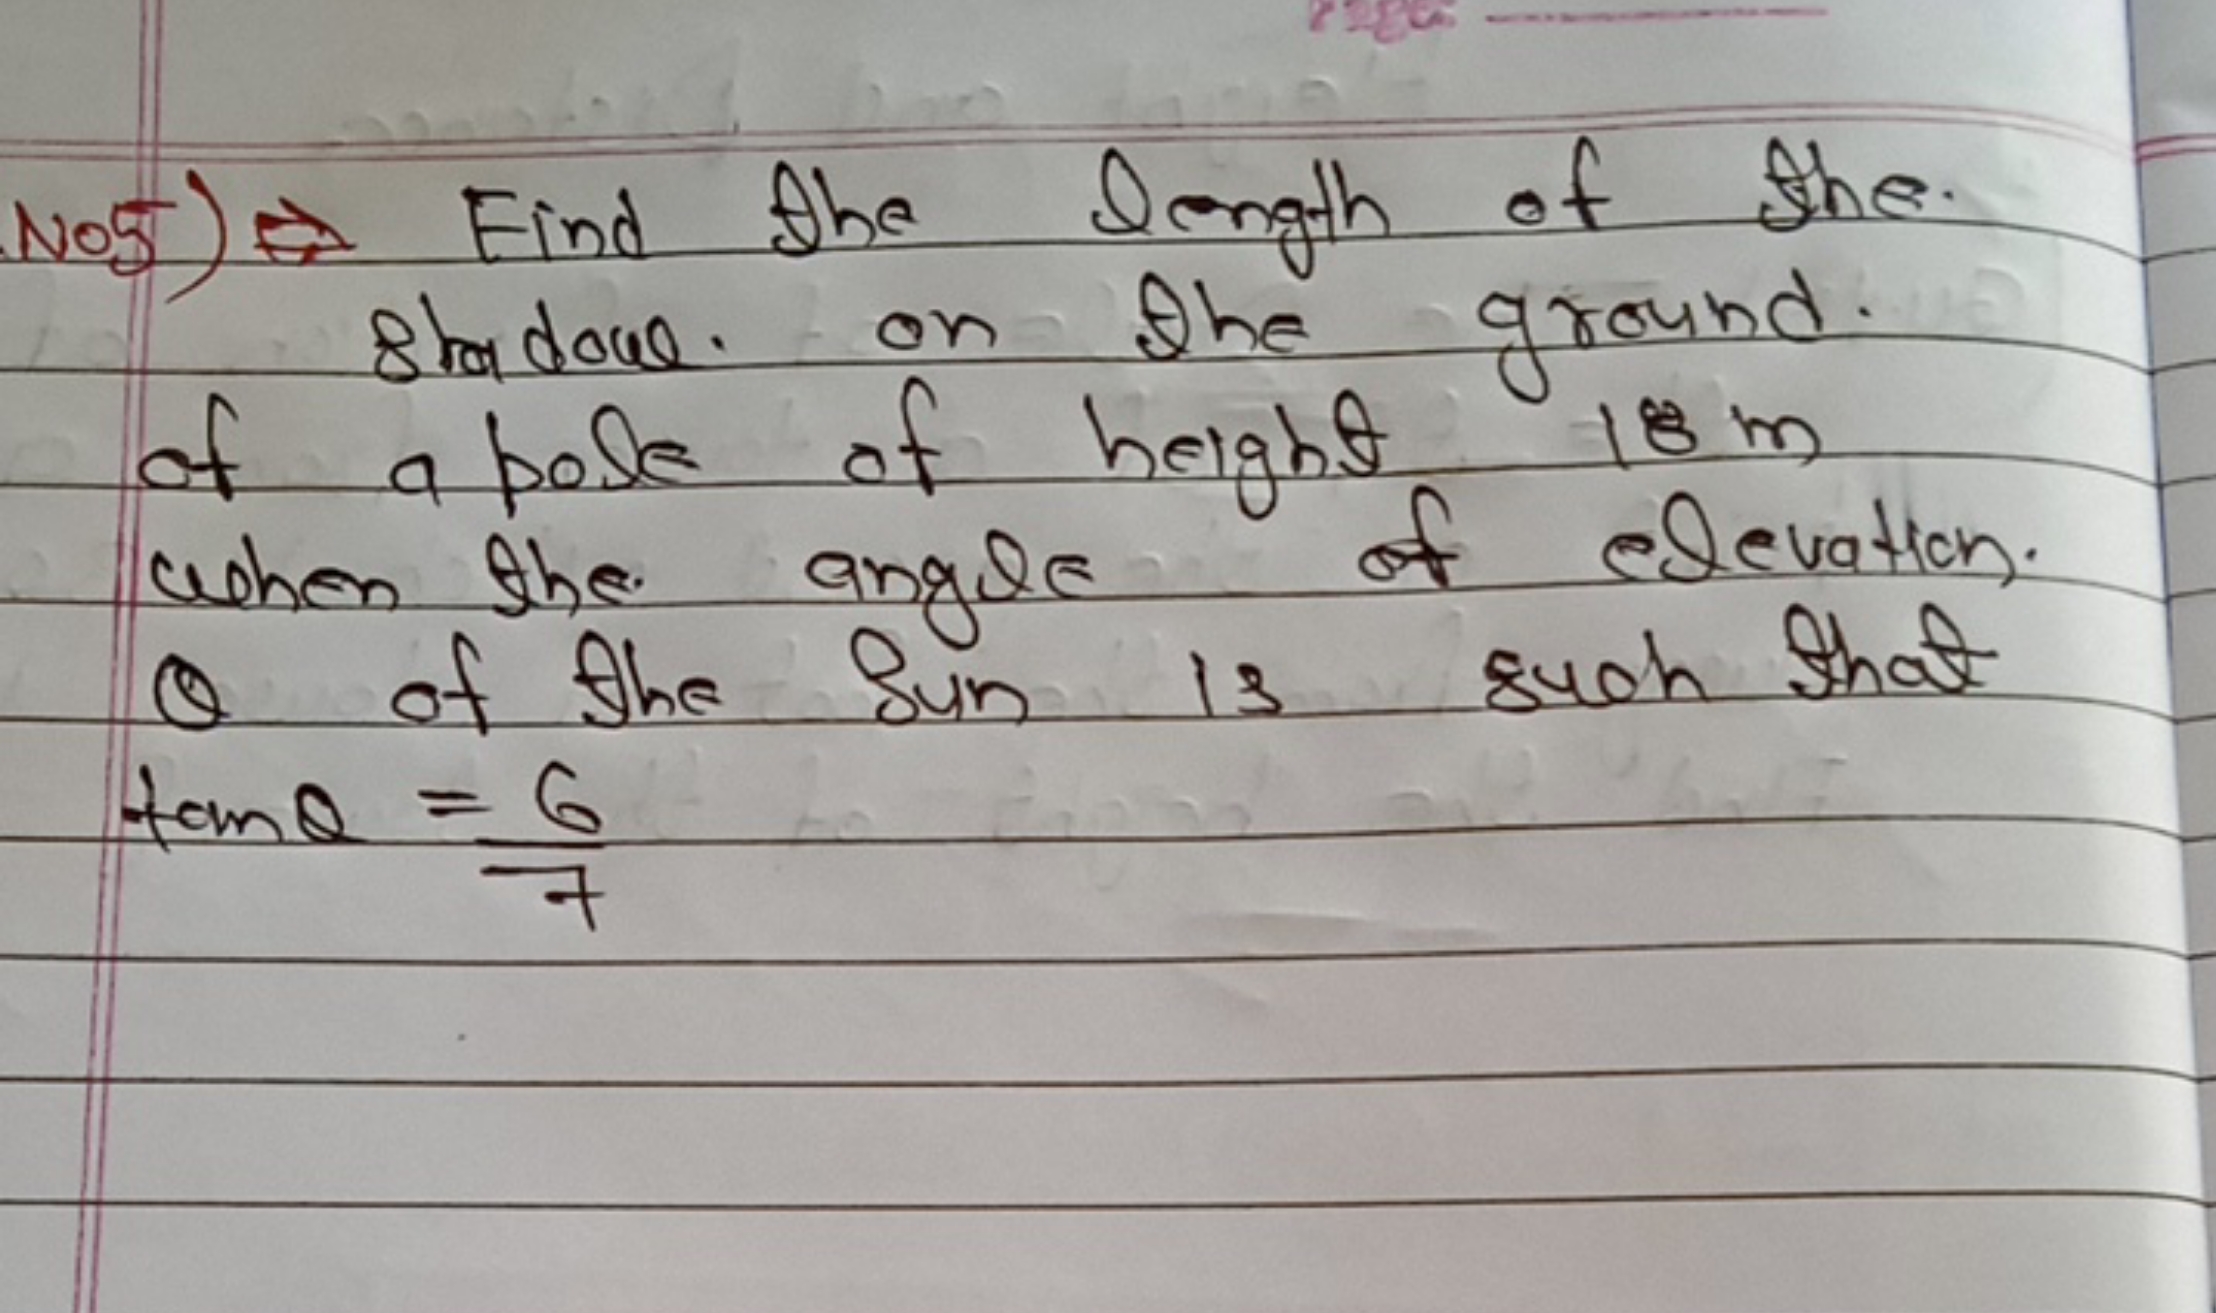 No5) ⇒ Find the length of the.
shadow. on the ground.
of a pole of height 18 m
when the angle of elevation.
θ of the Sun is such that
tanθ = 6/7